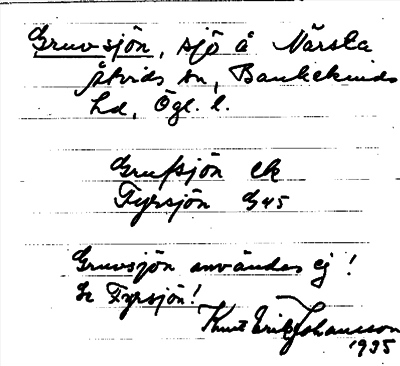 Gruvsjön, sjö å Närsta
Åtvids sn, Bankekinds
hd, Ögl. l.
Grufsjön ek
Fyrsjön G45
Gruvsjön användes ej!
Se Fyrsjön!
Knut Erik Johansson
1935